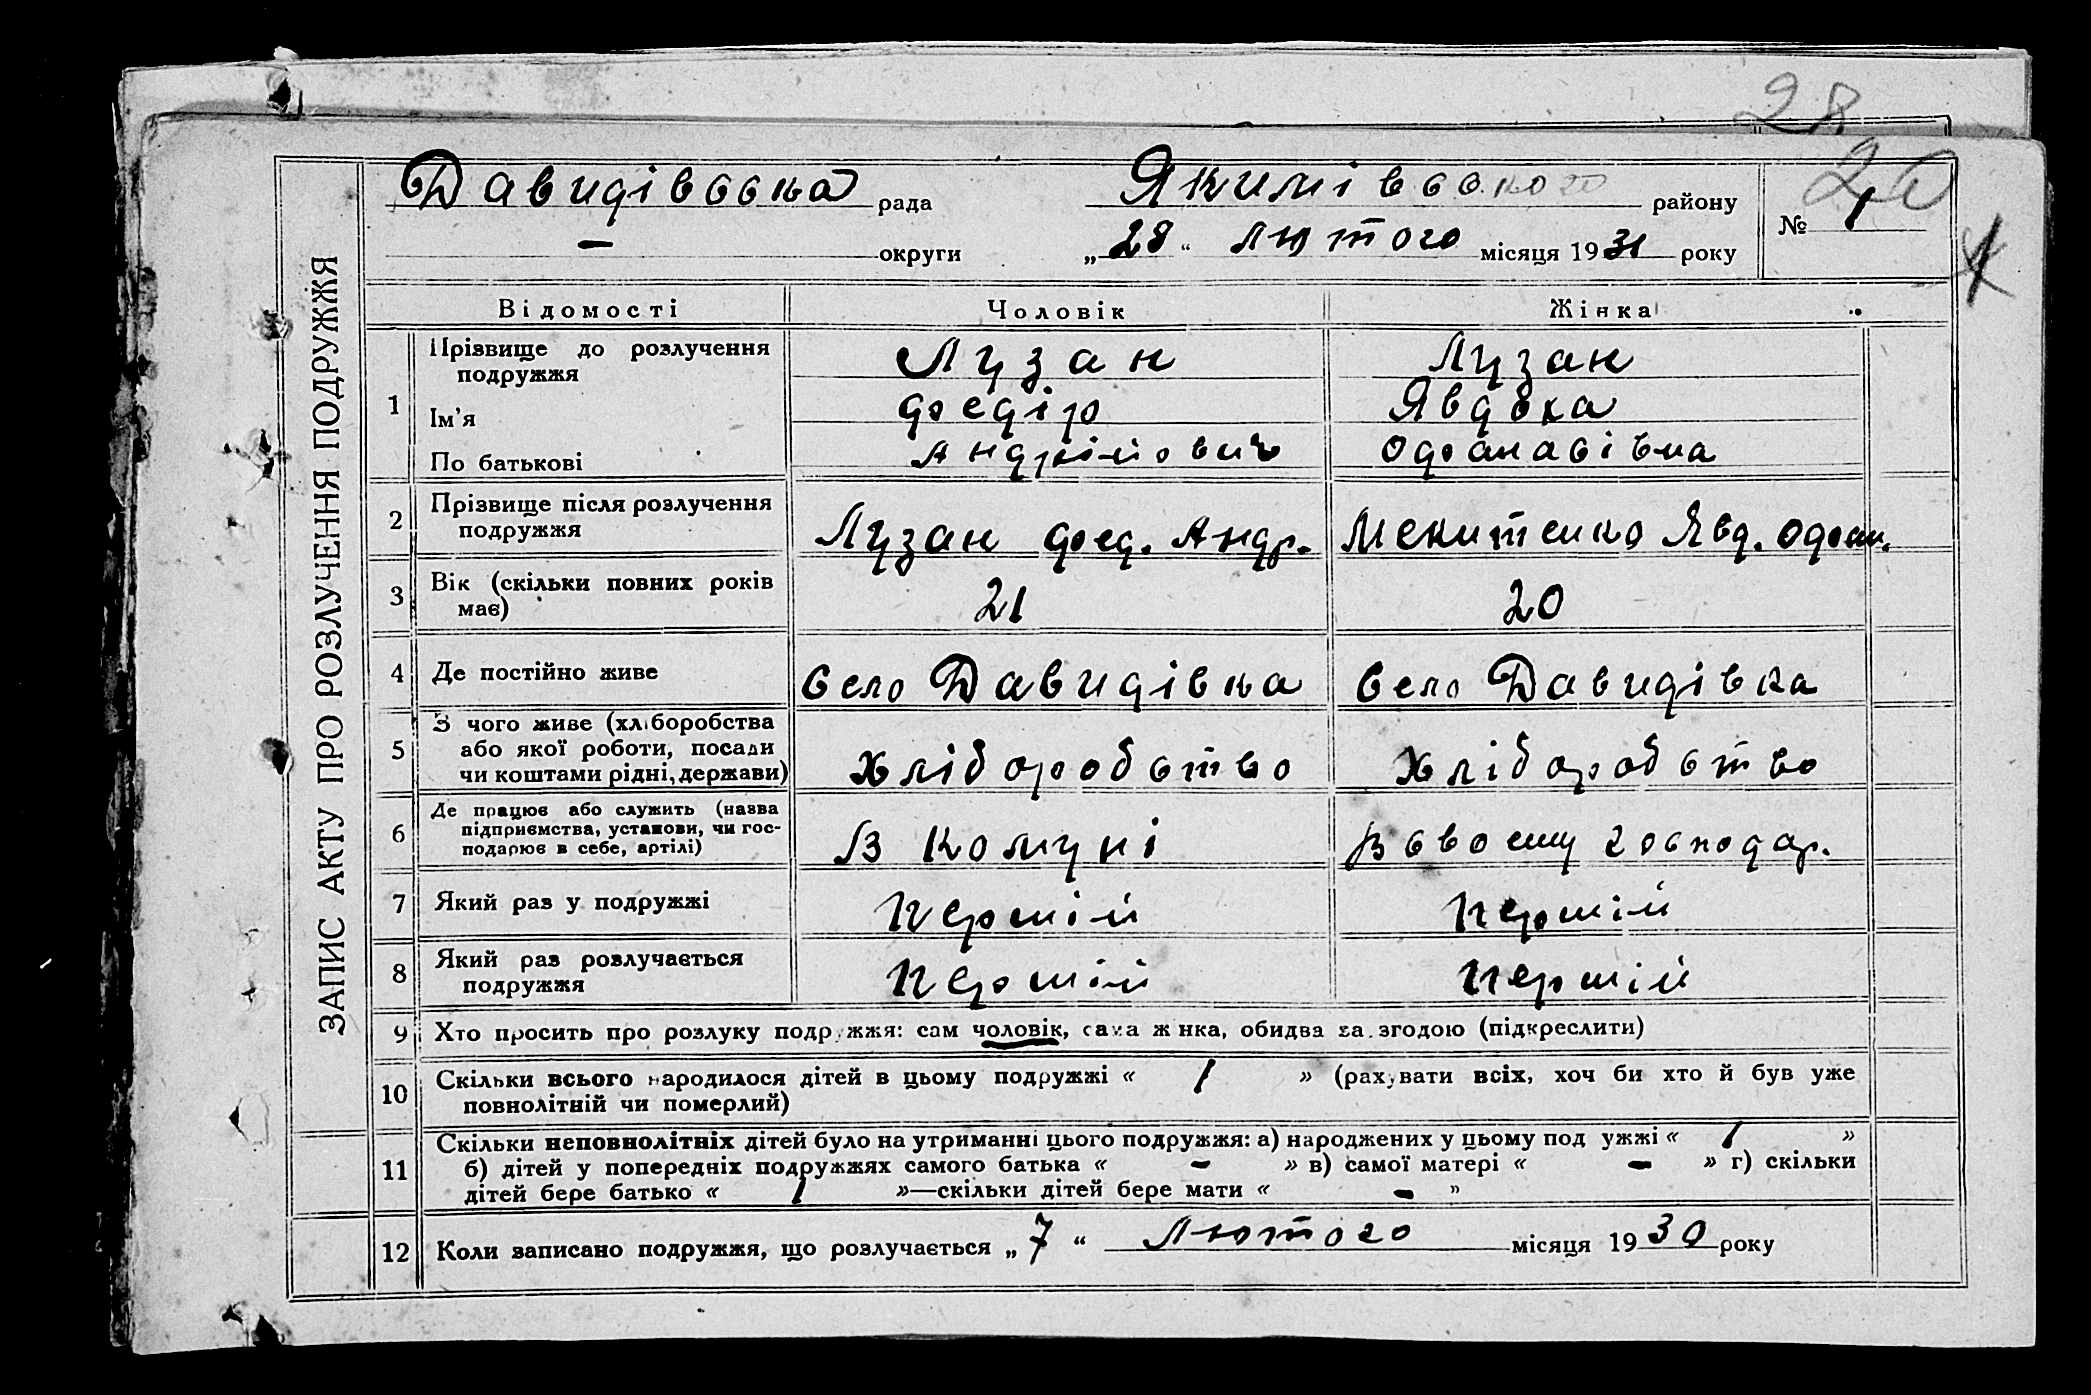 28
20
ЗАПИС АКТУ ПРО РОЗЛУЧЕННЯ ПОДРУЖЖЯ
Давидівська рада Якимівського району
— округи „28“ лютого місяця 1931 року № 1
Відомості Чоловік Жінка
1 Прізвище до розлучення подружжя Лузан Лузан
Ім’я Федір Явдоха
По батькові Андрійович
2 Прізвище після розлучення подружжя Лузан Фед. Андр. Мекитенко Явд.
3 Вік (скільки повних років має) 21 20
4 Де постійно живе Село Давидівка Село Давидівка
5 З чого живе (хліборобства або якої роботи, посади чи коштами рідні, держави) Хлібороботво Хлібороботво
6 Де працює або служить (назва підприємства, установи, чи гос-подарює в себе, артілі) В Комуні В своєму господар.
7 Який раз у подружжі Першій Першій
8 Який раз розлучається подружжя Першій Першій
9 Хто просить про розлуку подружжя: сам чоловік, сама жінка, обидва за згодою (підкреслити)
10 Скільки всього народилося дітей в цьому подружжі « 1 » (рахувати всіх, хоч би хто й був уже
повнолітній чи померлий)
11 Скільки неповнолітніх дітей було на утриманні цього подружжя: а) народжених у цьому подружжі « 1 »
б) дітей у попередніх подружжях самого батька « - » в) самої матері « - » г) скільки
дітей бере батько « 1 »—скільки дітей бере мати « - »
12 Коли записано подружжя, що розлучається „7“ Лютого місяця 1930 року